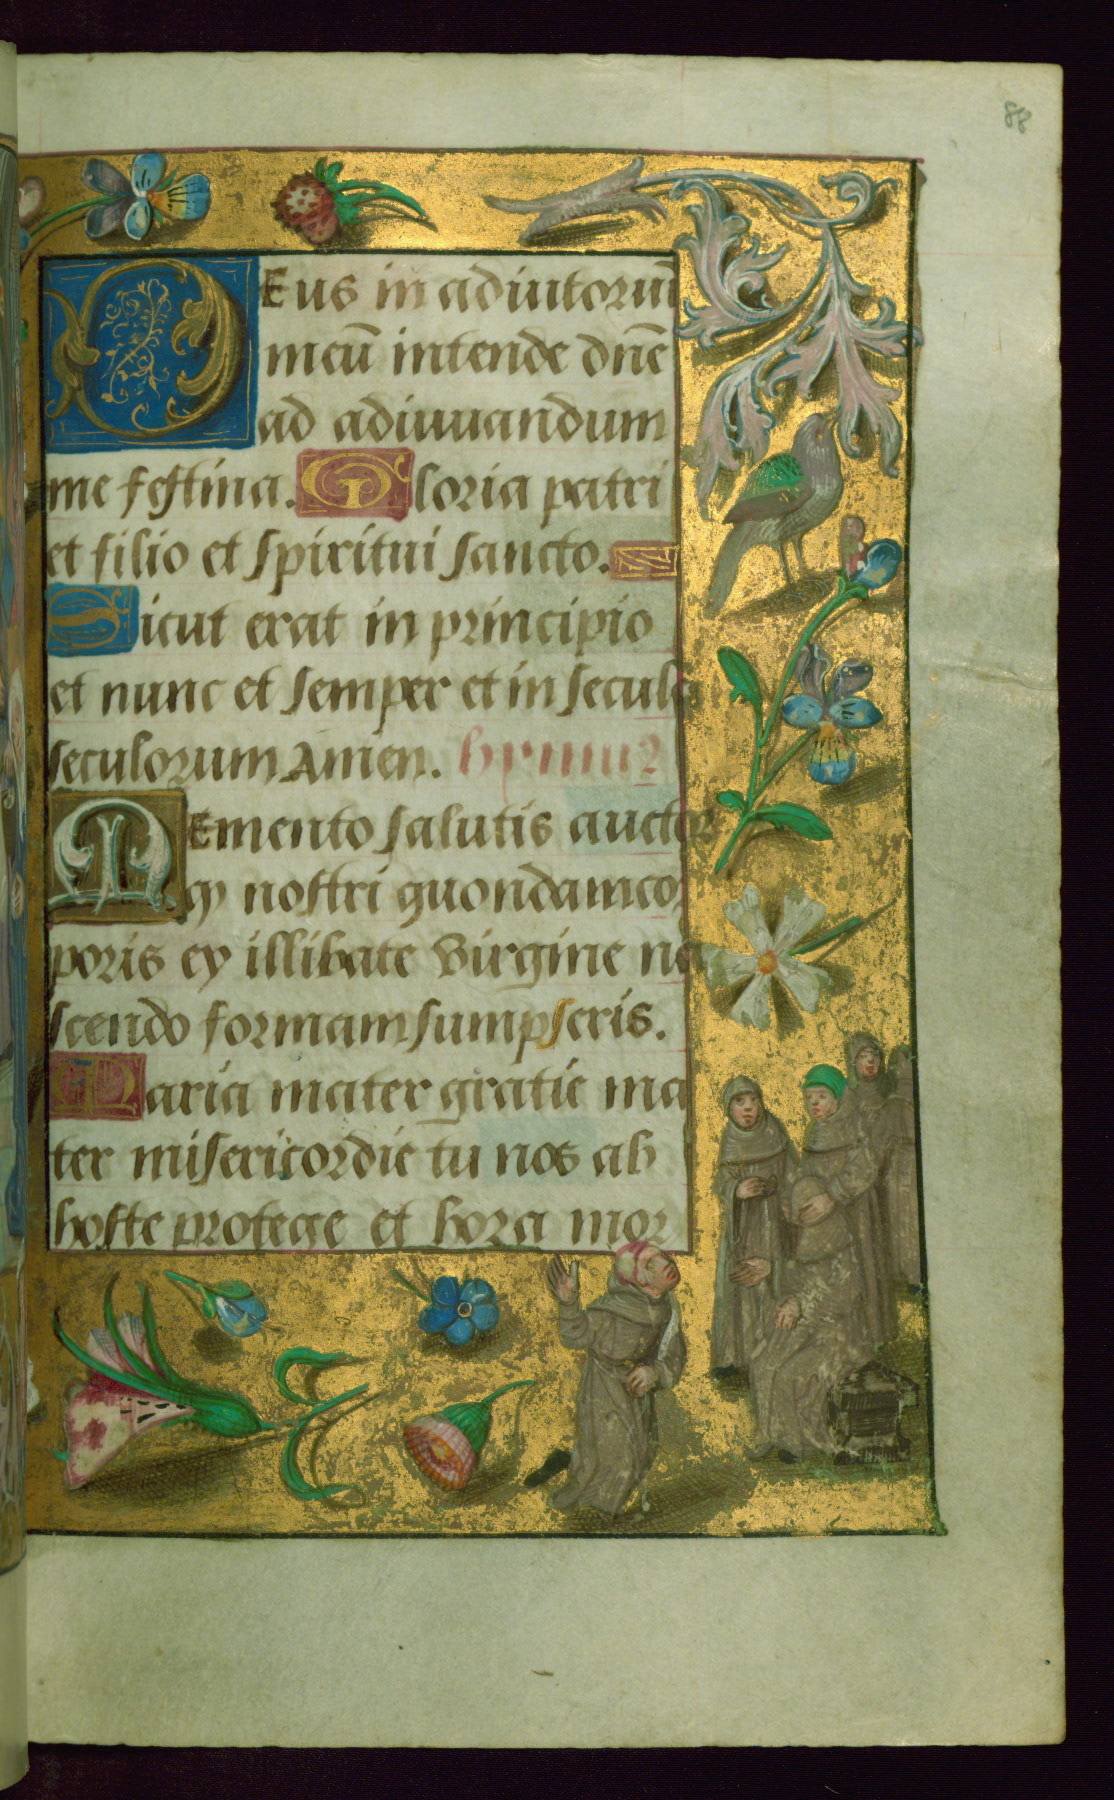 88
DEus in adiutoriū
meū intende dn̄e
ad adiuuandum
me festina. Gloria patri
et filio et spiritui sancto.
Sicut erat in principio
et nunc et semper et in secula
seculorum Amen. hymnus
MEmento salutis auctor
qȝ nostri quondam cor
poris ex illibate virgine na
scendo formam sumpseris.
Maria mater gratie ma
ter misericordie tu nos ab
hoste protege et hora mor